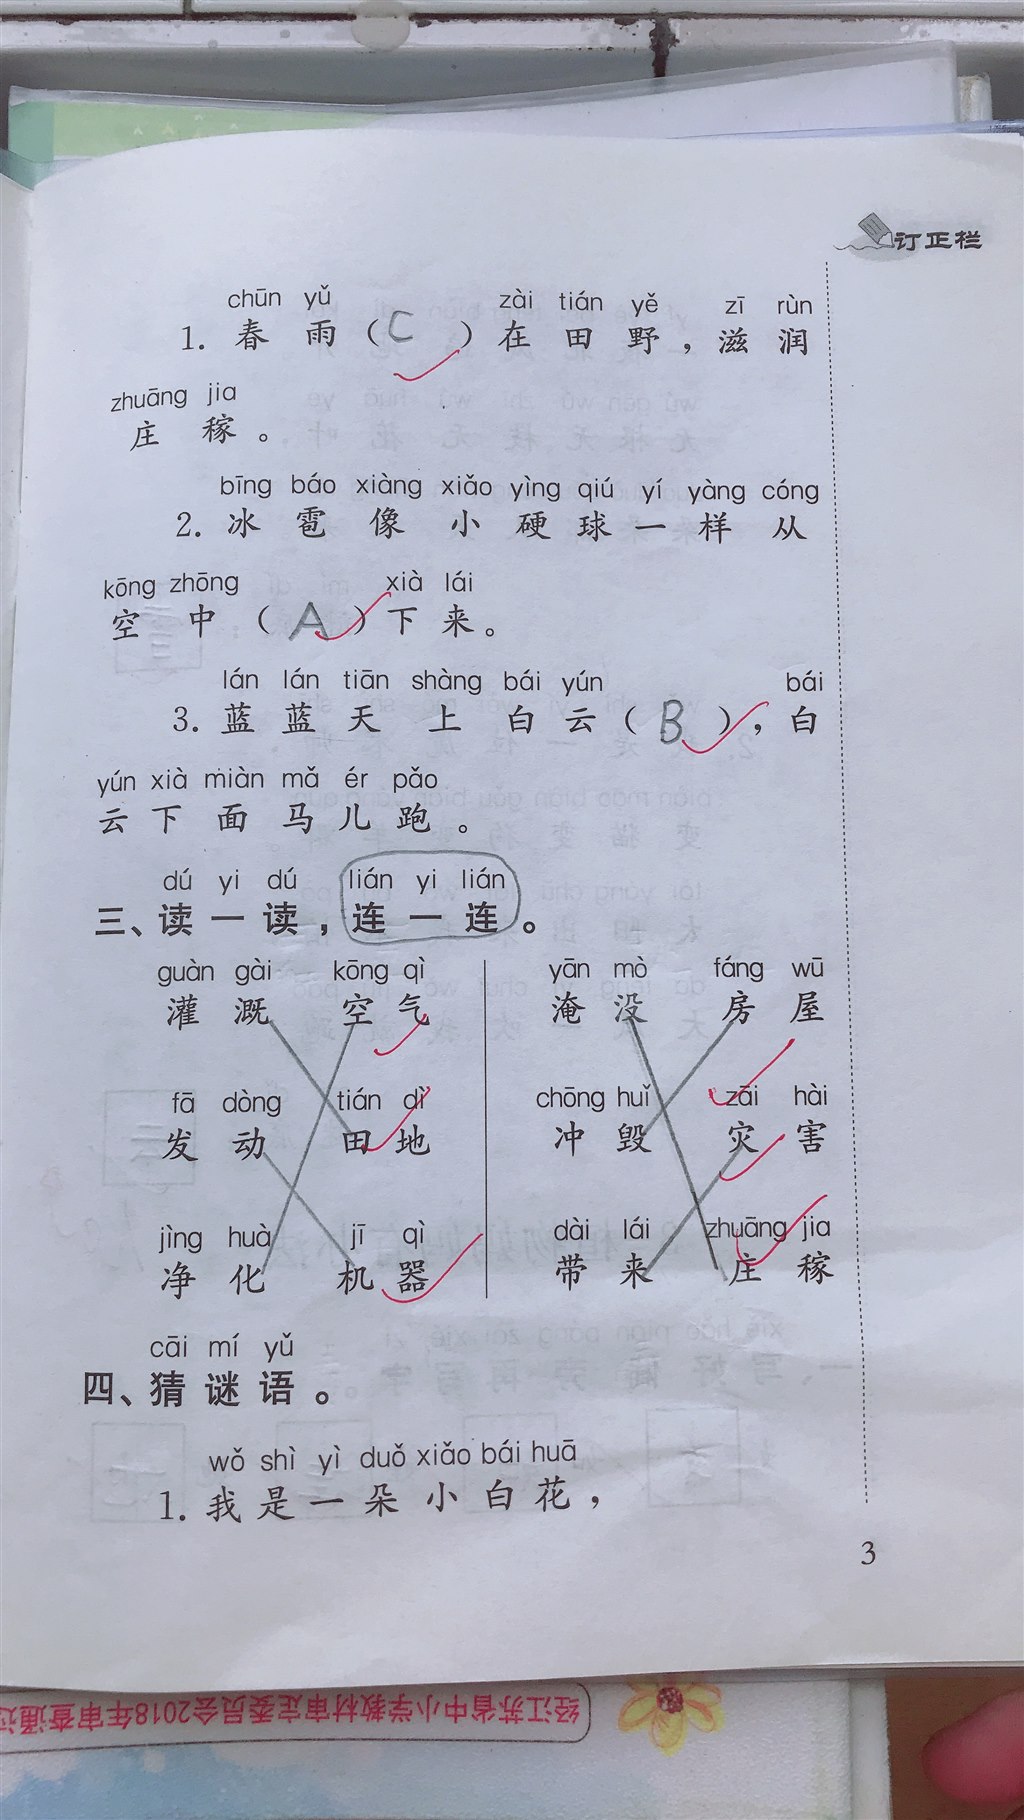 订正栏
chūn yǔ zài tián yě zī rùn
1. 春雨（C）在田野，滋润
zhuāng jia
庄稼。
bīng báo xiàng xiǎo yìng qiú yí yàng cóng
2. 冰雹像小硬球一样从
kōng zhōng xià lái
空中（A）下来。
lán lán tiān shàng bái yún bái
3. 蓝蓝天上白云（B），白
yún xià miàn mǎ ér pǎo
云下面马儿跑。
dú yi dú lián yi lián
三、读一读，连一连。
guàn gài kōng qì yān mò fáng wū
灌溉 空气 淹没 房屋
fā dòng tián dì chōng huǐ zāi hài
发动 田地 冲毁 灾害
jìng huà jī qì dài lái zhuāng jia
净化 机器 带来 庄稼
cāi mí yǔ
四、猜谜语。
wǒ shì yì duǒ xiǎo bái huā
1. 我是一朵小白花，
3
经江苏省中小学教材审定委员会2018年审查通过